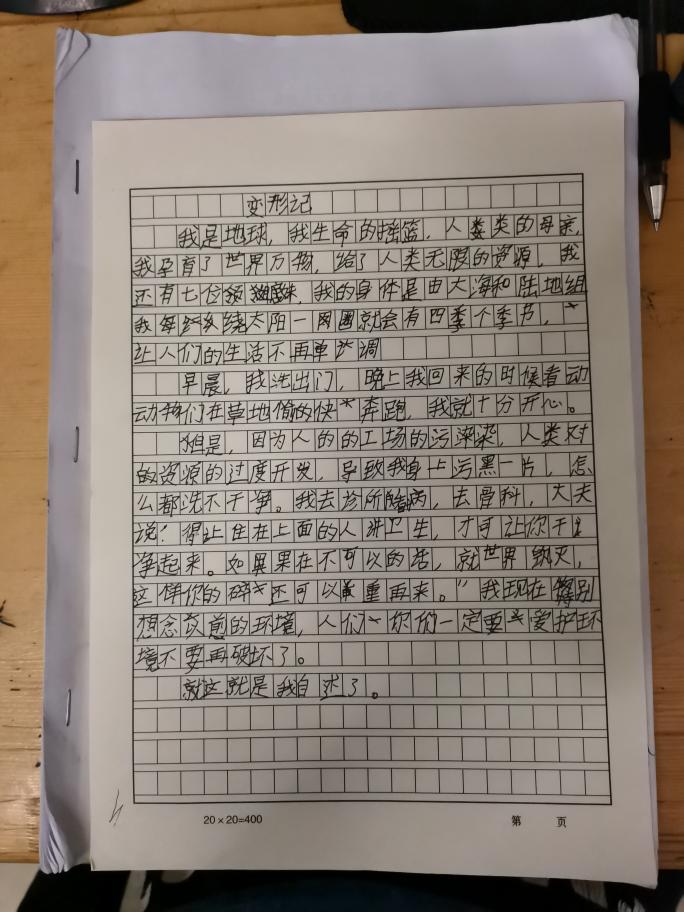 变形记
我是地球，我生命的摇篮，人类类的母亲，
我孕育了世界万物，给了人类无限的资源，我
还有七位姊妹，我的身体是由大海和陆地组
我每绕太阳一周圈就会有四季个季节，
让人们的生活不再单调
早晨，我洗出门，晚上我回来的时候看动
动物们在草地愉的快奔跑，我就十分开心。
但是，因为人的的工场的污染染，人类对
的资源的过度开发，导致我身上污黑一片，怎
么都洗不干净。我去诊所看病，去骨科，大夫
说：得让住在上面的人讲卫生，才可让你干
净起来。如果在不可以的话，就世界毁灭，
这样你的碎还可以重再来。"我现在特别
想念以前的环境，人们你们一定要爱护环
境不要再破坏了。
就这就是我自述了。
20×20=400 第 页